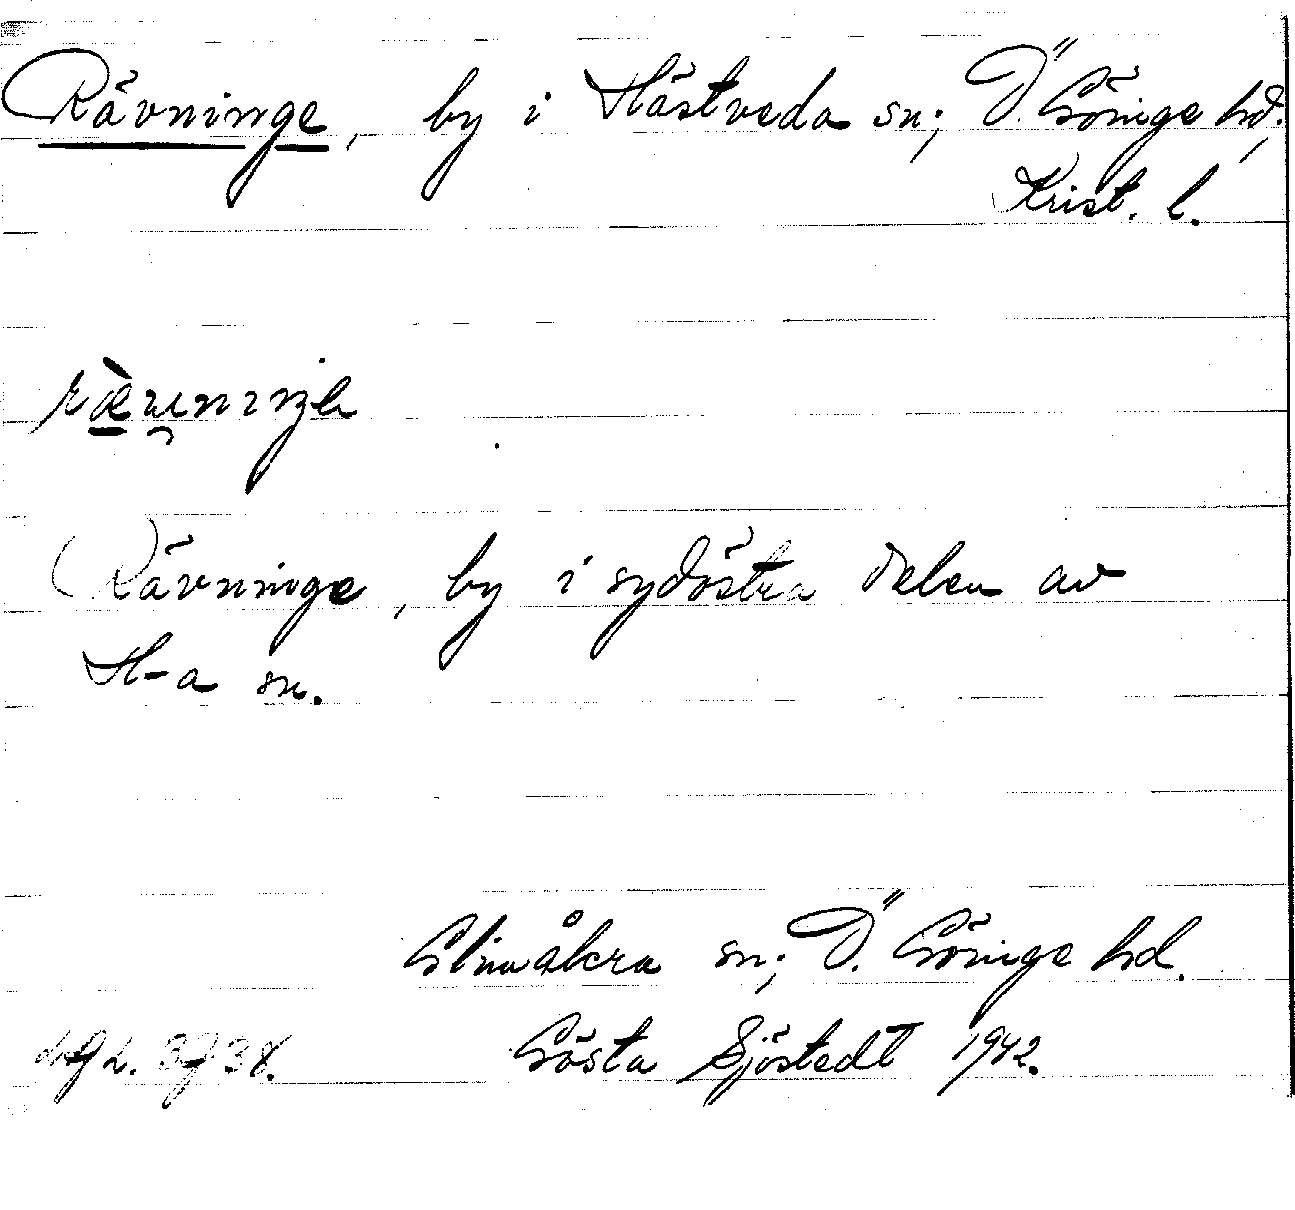 Rävninge, by i Hästveda sn; Ö. Göinge hd,
Krist. l.
Rävninge, by i sydöstra delen av
H-a sn.
Glimåkra sn; Ö. Göinge hd.
Gösta Sjöstedt 1942.